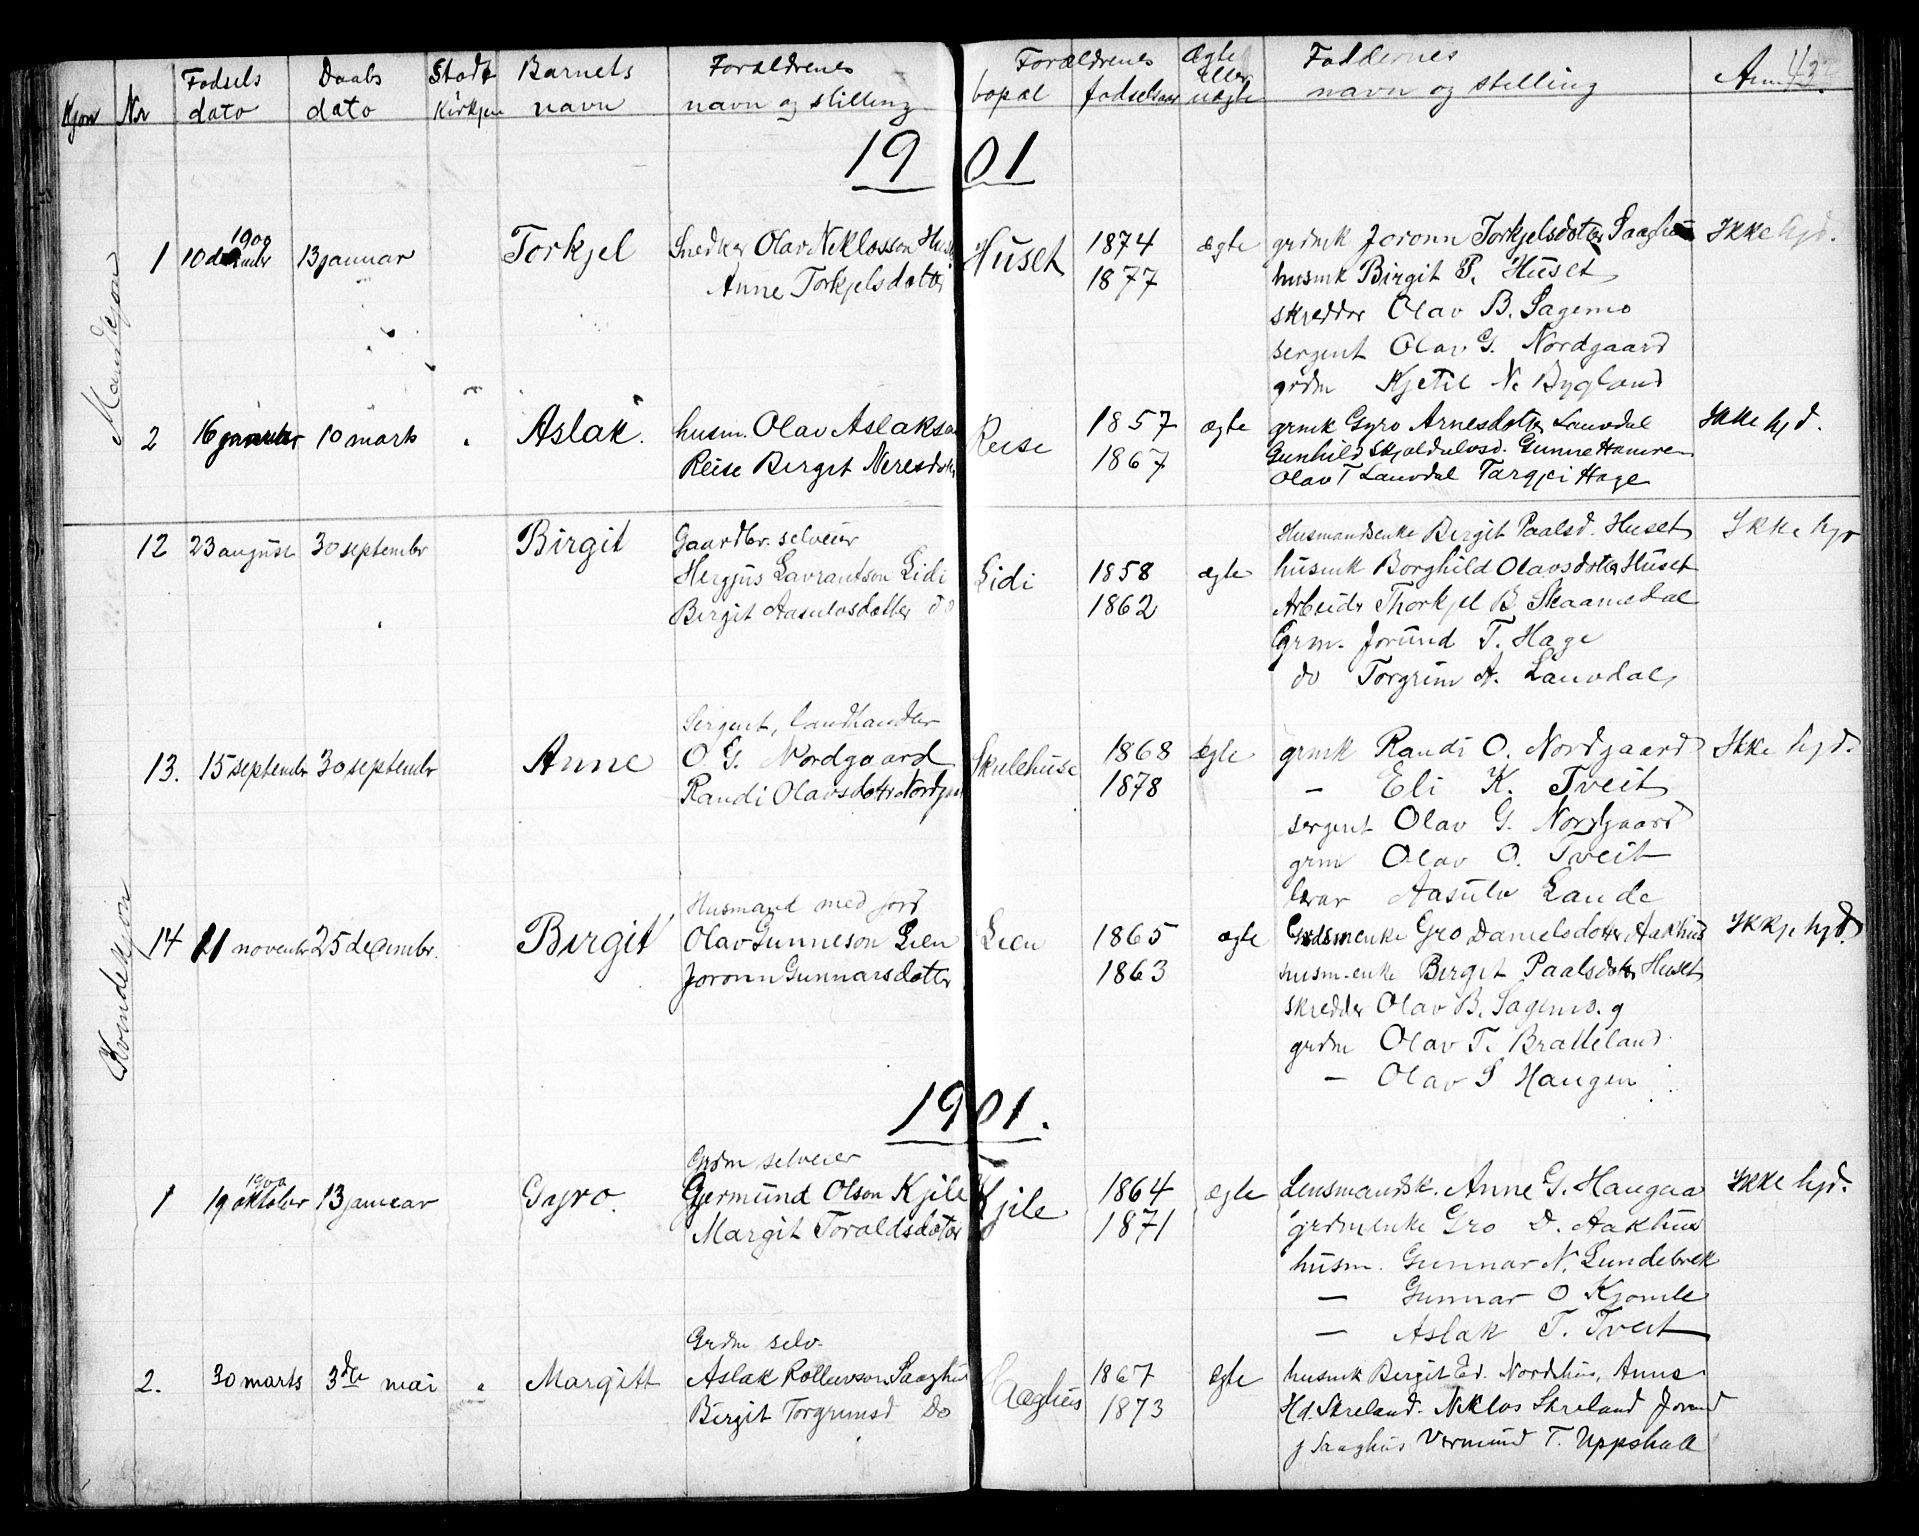 Kjøn Nr Fødsels dato Daabs dato Stadt Kirkjen Barnets navn Forældrenes navn og stilling Forældrenes bopæl fødselsaar Ægte eller uægte Faddernes navn og stilling Anm.
1901
Mandkjøn
1 10 december 1900 13 januar Torkjel Snedker Olav Neklosson Huset Huset 1874 ægte grdmk Joronn Torkjelsdotter Saaghus Ikke hjd.
Anne Torkjelsdatter 1877 husmk Birgit P. Huset
skredder Olav B. Sagemo
sergent Olav G. Nordgaard
grdm Kjetil N. Bygland
2 16 januar 10 marts Aslak. husm. Olav Aslakson Reise 1857 ægte grmk Gyro Arnesdotter Lauvdal Ikke hjd.
Reise Birgit Neresdotter 1867 Gunhild Skjoldulvsd. Gunne Hamre
Olav T Lauvdal Targjei Hage
Kvindekjøn
12 23 august 30 septembr Birgit Gaardbr. selveier Husmandsenke Bergit Paalsd. Huset Ikke hjd
Hergjus Lavrantson Lidi Lidi 1858 ægte husmk Borghild Olavsdotter Huset
Birgit Aasulvsdatter do 1862 Arbeidr Thorkjel B Skaamedal
Grm. Jorund T. Hage
do Torgrim A. Lauvdal
Sergent, landhandler
13. 15 septembr 30 septembr Anne O. G. Nordgaard Skulehuse 1868 ægte grmk Randi O. Nordgaard Ikke hjd.
Randi Olavsdottr Nordgaard 1878 — Eli K. Tveit
sergent Olav G. Nordgaard
grm Olav O. Tveit
lærar Aasulv Lande
Husmand med jord
14 11 novembr 25 decembr. Birgit Olav Gunneson Lien Lien 1865 ægte Grdsmenke Gro Danielsdotter Aakhus Ikkje hjd.
Joronn Gunnarsdotter 1863 husm-enke Birgit Paalsdotter Huset
skredder Olav B. Sagemo. g
grdm Olav T. Bratteland
— Olav S Haugen
1901.
Grdm selveier
1 19 oktober 1900 13 januar Gyro. Gjermund Olson Kjile Kjile 1864 ægte Lensmandsk. Anne G. Haugaa Ikke hjd.
Margit Toraldsdotter 1871 grdmenke Gro D. Aakhus
husm. Gunnar N. Lundebrek
— Gunnar O Kjomle
— Aslak T. Tveit
Grdm selv.
2. 30 marts 3de mai Margitt Aslak Rolleivson Saaghus Saaghus 1867 ægte husmk Birgit Ed. Nordhus, Anne
Birgit Torgrimsd Do 1873 Hd. Skreland. Neklos Skreland Jorund
J Saaghus Vermund T. Uppstall